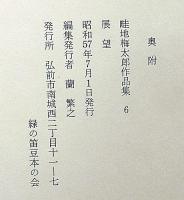 奥附
畦地梅太郎作品集 6
展望
昭和57年7月1日発行
編集発行者 蘭繁之
発行所 弘前市南城西二丁目十一―七
緑の笛豆本の会